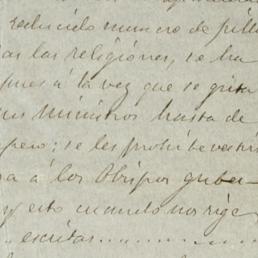 reducido numero de
as las religiónes, se ha
pues á la vez que se grita
us ministros hasta de
pero; se les prohibe vestir
a á los Obispos guber-
y esto cuando nos rige
escritas